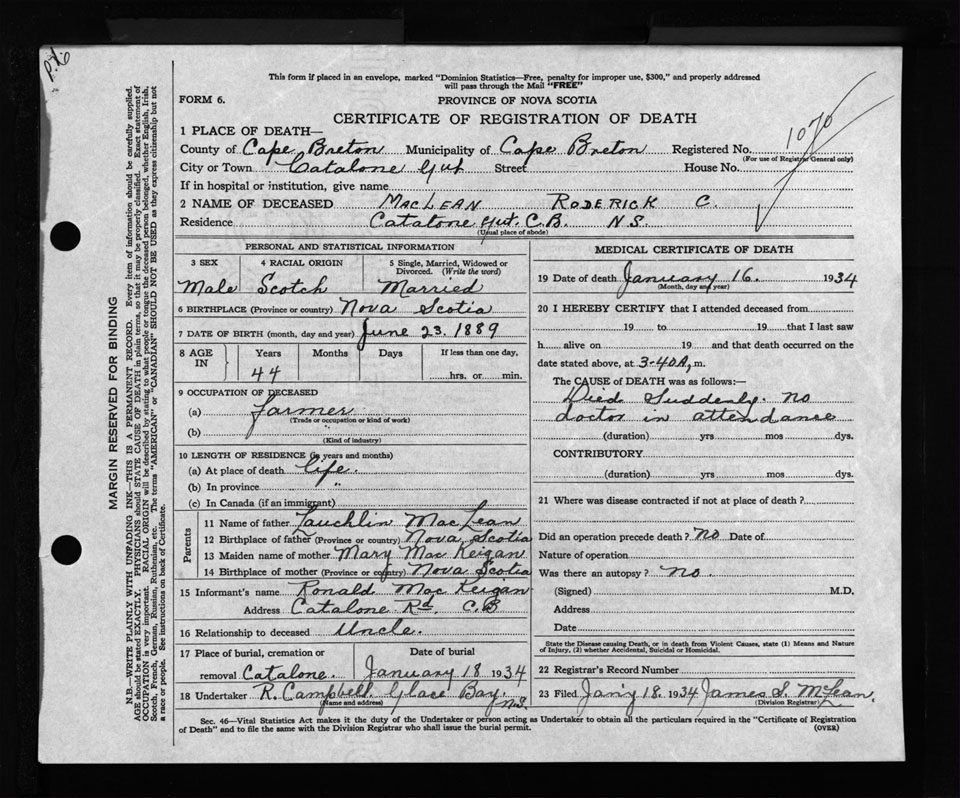 P.16
This form if placed in an envelope, marked "Dominion Statistics—Free, penalty for improper use, $300," and properly addressed
will pass through the Mail "FREE"
FORM 6.
PROVINCE OF NOVA SCOTIA
CERTIFICATE OF REGISTRATION OF DEATH
1070
1 PLACE OF DEATH—
County of Cape Breton Municipality of Cape Breton Registered No.
(For use of Registrar General only)
City or Town Catalone Gut Street House No.
If in hospital or institution, give name
2 NAME OF DECEASED MACLEAN RODERICK C.
Residence Catalone Gut. C.B. N.S.
(Usual place of abode)
PERSONAL AND STATISTICAL INFORMATION
3 SEX 4 RACIAL ORIGIN 5 Single, Married, Widowed or
Divorced. (Write the word)
Male Scotch Married
6 BIRTHPLACE (Province or country) Nova Scotia
7 DATE OF BIRTH (month, day and year) June 23. 1889
8 AGE IN Years Months Days If less than one day,
44 hrs. or min.
9 OCCUPATION OF DECEASED
(a) Farmer
(Trade or occupation or kind of work)
(b)
(Kind of industry)
10 LENGTH OF RESIDENCE (in years and months)
(a) At place of death life.
(b) In province "
(c) In Canada (if an immigrant)
Parents
11 Name of father Lauchlin MacLean
12 Birthplace of father (Province or country) Nova Scotia
13 Maiden name of mother Mary MacKeigan
14 Birthplace of mother (Province or country) Nova Scotia
15 Informant's name Ronald MacKeigan
Address Catalone Rd. C.B
16 Relationship to deceased Uncle.
17 Place of burial, cremation or Date of burial
removal Catalone. January 18 1934
18 Undertaker R. Campbell. Glace Bay. N.S.
(Name and address)
MEDICAL CERTIFICATE OF DEATH
19 Date of death January 16. 1934
(Month, day and year)
20 I HEREBY CERTIFY that I attended deceased from
19 to 19 that I last saw
h alive on 19 and that death occurred on the
date stated above, at 3-40A, m.
The CAUSE of DEATH was as follows:—
Died Suddenly. no
doctor in attendance
(duration) yrs mos dys.
CONTRIBUTORY
(duration) yrs mos dys.
21 Where was disease contracted if not at place of death?
Did an operation precede death? no Date of
Nature of operation
Was there an autopsy? no.
(Signed) M.D.
Address
Date
State the Disease causing Death, or in death from Violent Causes, state (1) Means and Nature
of Injury, (2) whether Accidental, Suicidal or Homicidal.
22 Registrar's Record Number
23 Filed Jan'y 18. 1934 James S. McLean.
(Division Registrar)
Sec. 46—Vital Statistics Act makes it the duty of the Undertaker or person acting as Undertaker to obtain all the particulars required in the "Certificate of Registration
of Death" and to file the same with the Division Registrar who shall issue the burial permit.
(OVER)
MARGIN RESERVED FOR BINDING
N.B.—WRITE PLAINLY WITH UNFADING INK—THIS IS A PERMANENT RECORD. Every item of information should be carefully supplied.
AGE should be stated EXACTLY. PHYSICIANS should STATE CAUSE OF DEATH in plain terms, so that it may be properly classified. Exact statement of
OCCUPATION is very important. RACIAL ORIGIN will be described by stating to what people or tongue the deceased person belonged, whether English, Irish,
Scotch, French, German, Russian, Ruthenian, etc. The terms "AMERICAN" or "CANADIAN" SHOULD NOT BE USED as they express citizenship but not
a race or people. See instructions on back of Certificate.